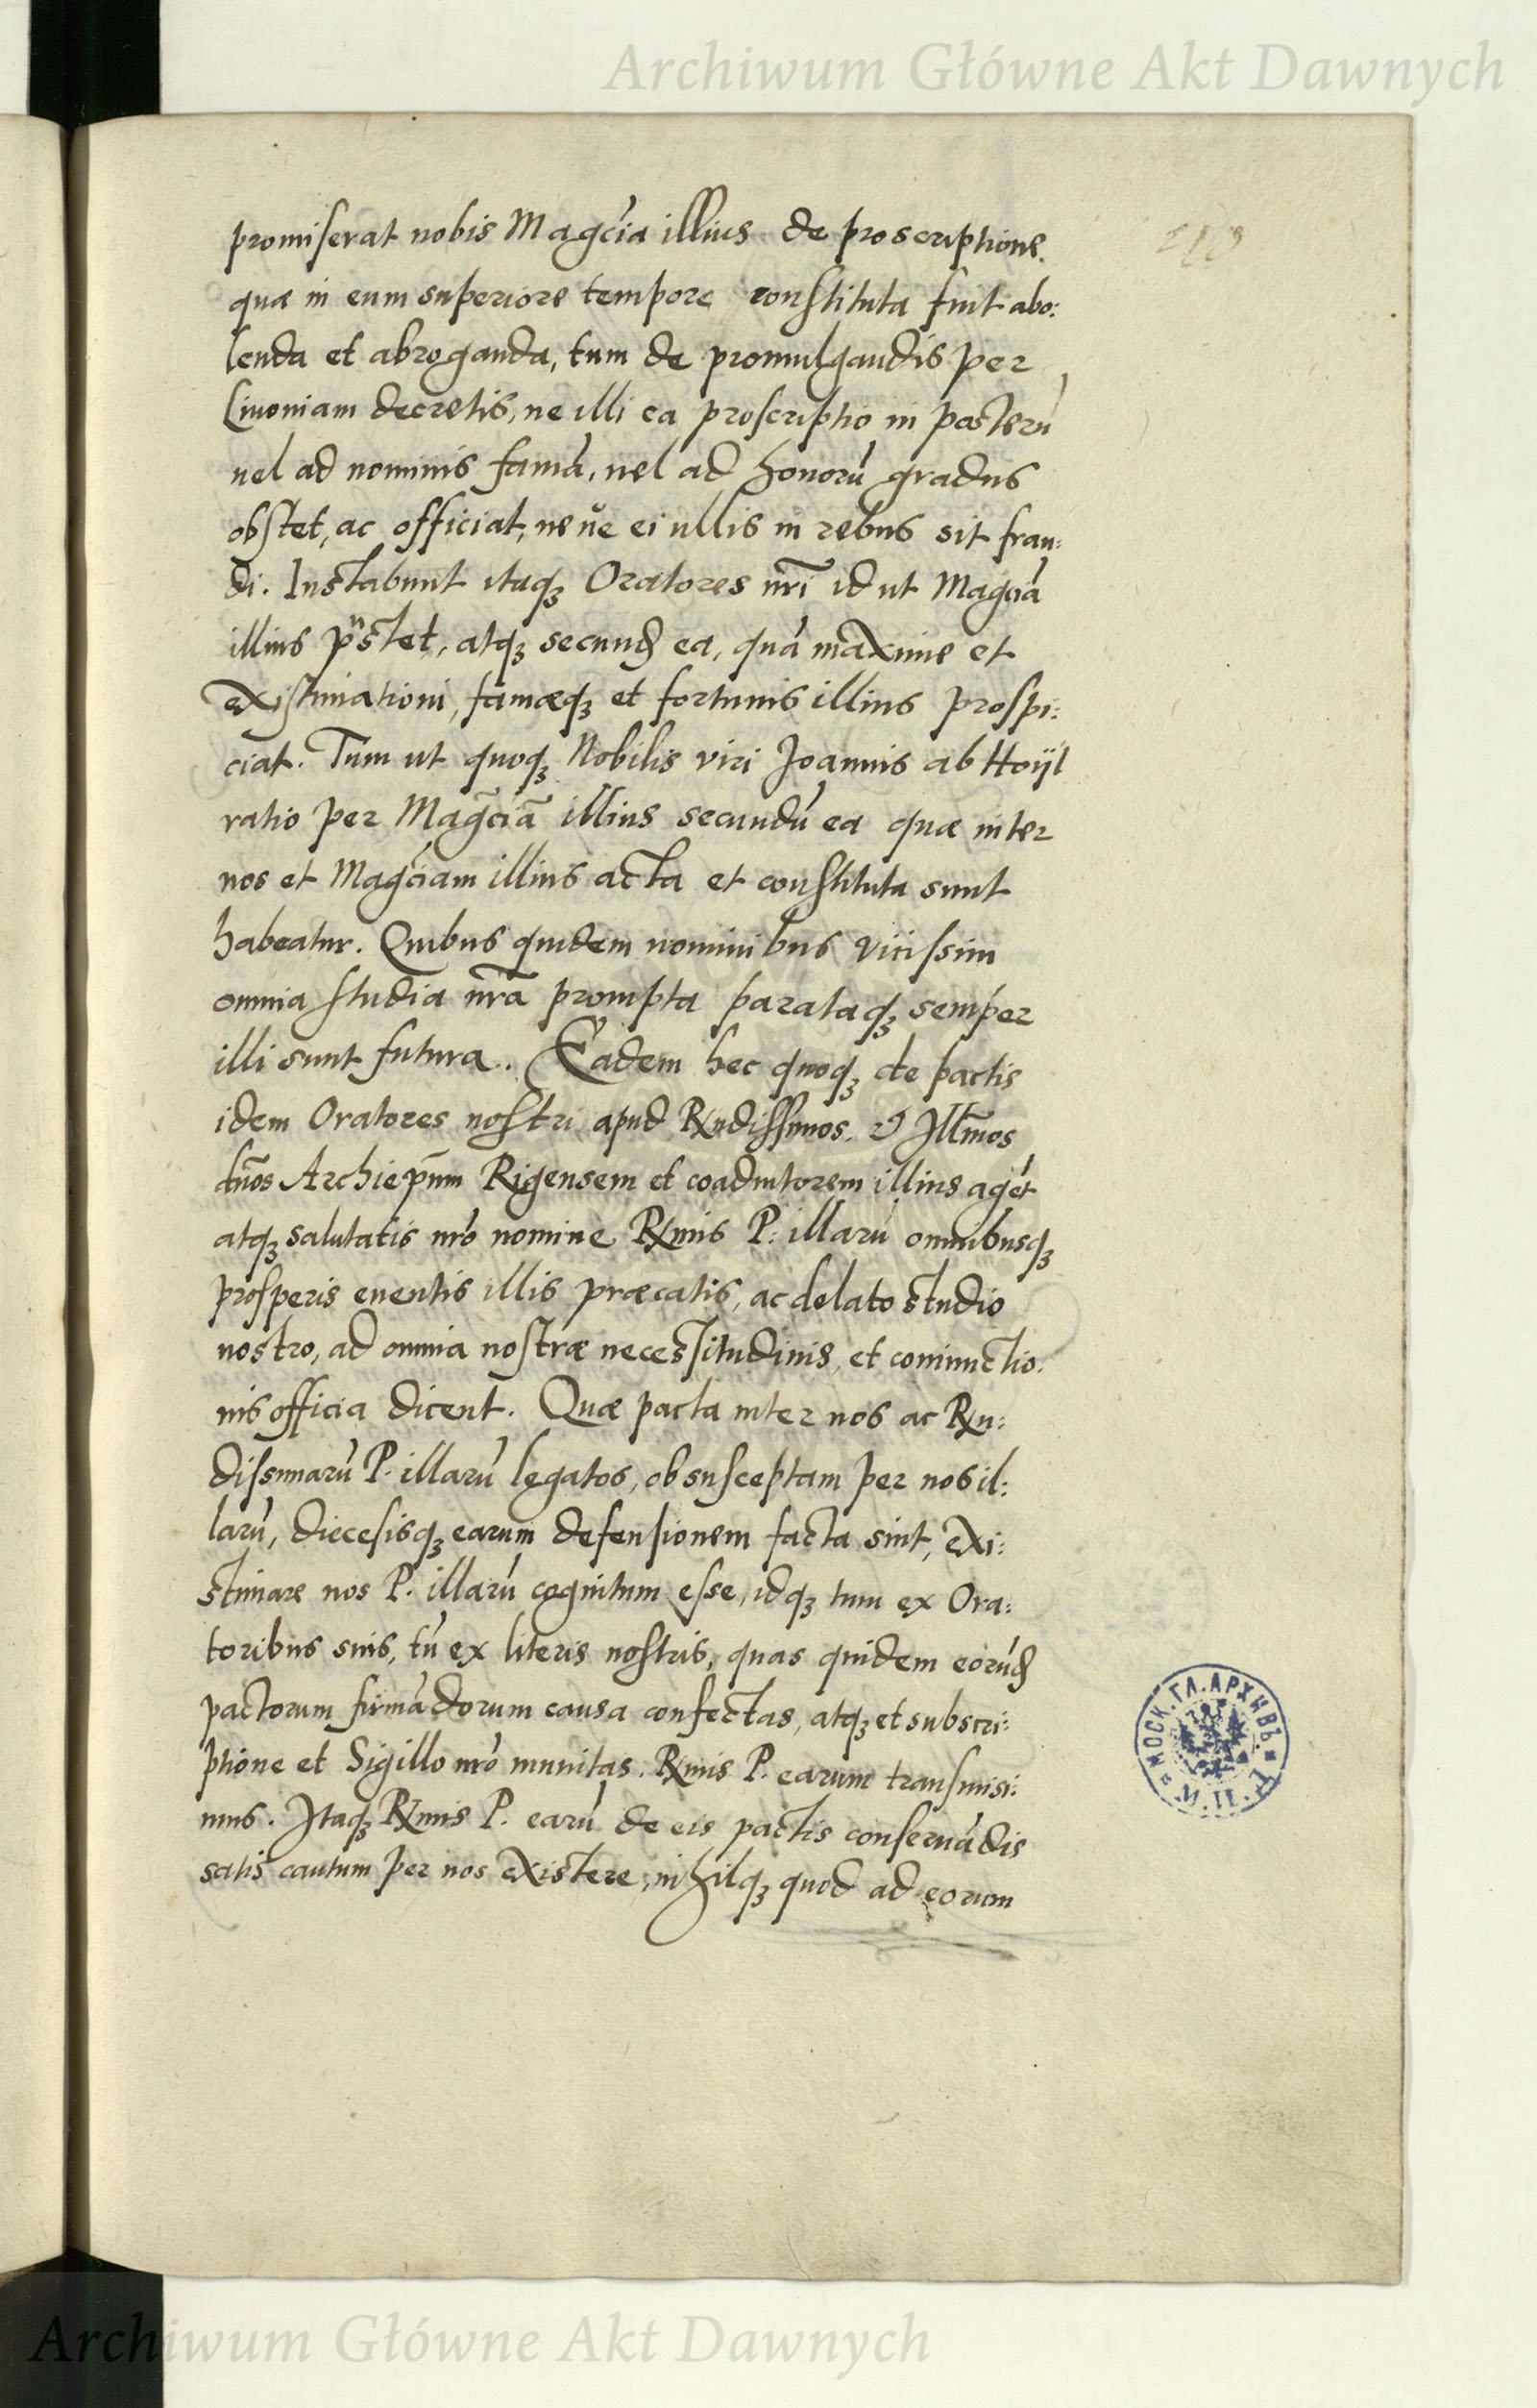 Archiwum Główne Akt Dawnych
promiserat nobis Magciá illius de proscriptione.
quæ in eum superiore tempore constituta fuit abo:
lenda et abroganda, tum de promulgandis per
Liuoniam decretis, ne illi ea proscriptio in posterú
uel ad nominis famá, uel ad honorú gradus
obstet, ac officiat, neue ei ullis in rebus sit frau:
di. Instabunt itaqꝫ Oratores nr̄i id ut Magciá
illius p̃stet, atqꝫ secundꝫ ea, quá maxime et
existimationi, famæqꝫ et fortunis illius prospi:
ciat. Tum ut quoqꝫ Nobilis viri Joannis ab Hoÿl
ratio per Mag̃ciã illius secundú ea quæ inter
nos et Magćiam illius acta et constituta sunt
habeatur. Quibus quidem nominibus vicissim
omnia studia nr̃a prompta parataqꝫ semper
illi sunt futura. Eadem hec quoqꝫ de pactis
idem Oratores nostri apud Rndissimos. et Jllm̃os
dn̄os Archiep̄um Rigensem et coadiutorem illius agét
atqꝫ salutatis nr̃o nomine Rmis P: illarú omnibusqꝫ
prosperis euentis illis præcatis, ac delato studio
nostro, ad omnia nostræ necessitudinis, et coniunctio:
nis officia dicent. Quæ pacta inter nos ac Rn:
dissimarú P. illarú legatos, ob susceptam per nos il:
larú, diecesisqꝫ earum defensionem facta sint, exi:
stimare nos P. illarú cognitum esse, idqꝫ tum ex Ora:
toribus suis, tú ex literis nostris, quas quidem eorúdꝫ
pactorum firmádorum causa confectas, atqꝫ et subscri:
ptione et Sigillo nr̃o munitas. Rmis P. earum transmisi:
mus. Jtaqꝫ Rmis P. earú de eis pactis conseruádis
satis cautum per nos existere, nihilqꝫ quod ad eorum
МОСК. ГЛ. АРХИВЪ
М. И. Д.
Archiwum Główne Akt Dawnych